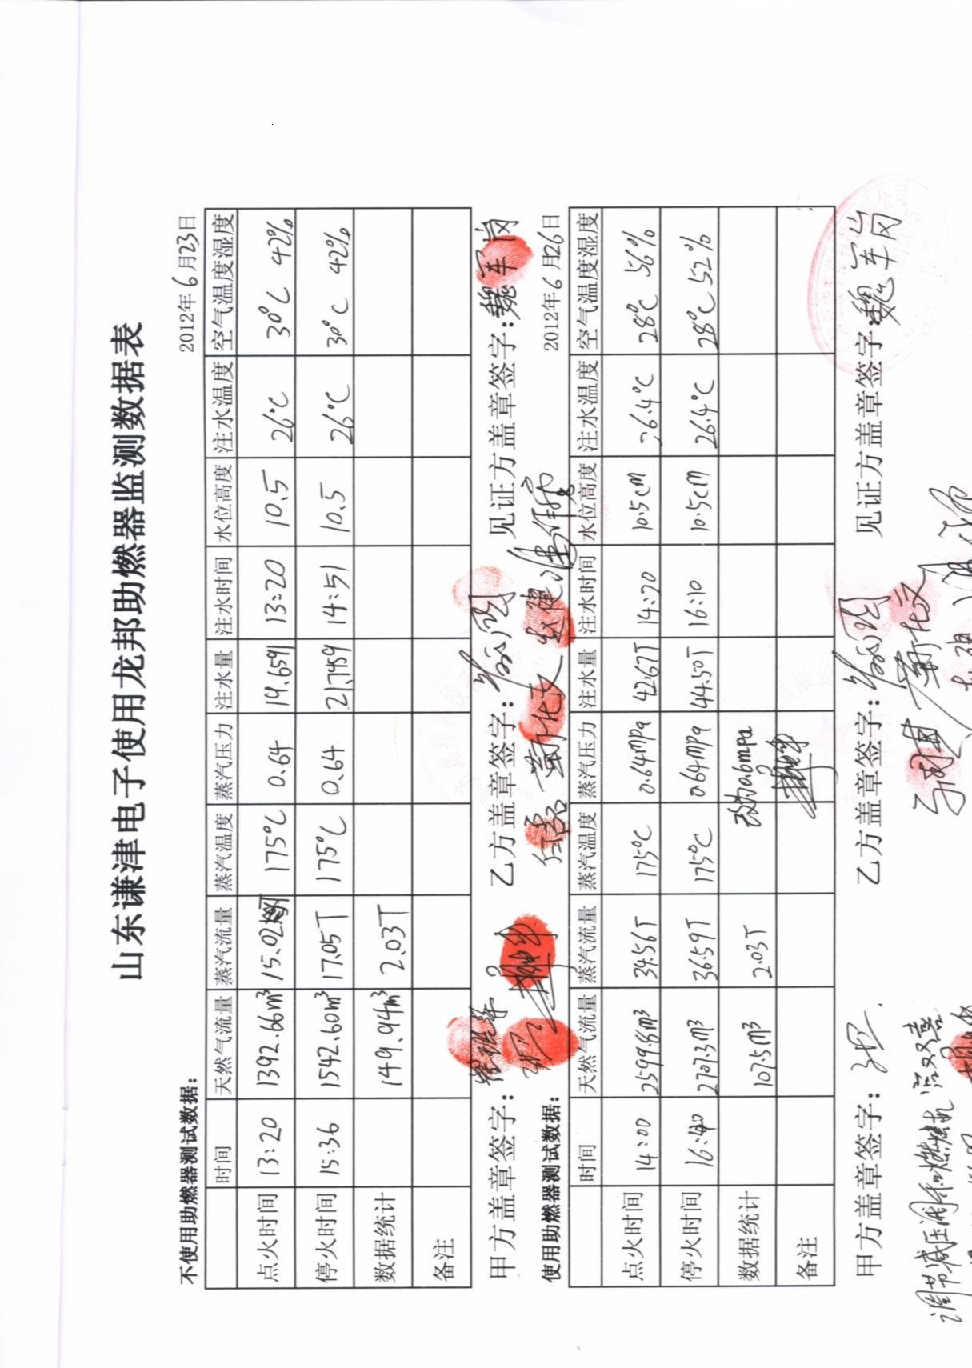 山东谦津电子使用龙邦助燃器监测数据表
不使用助燃器测试数据： 2012年6月23日
时间 天然气流量 蒸汽流量 蒸汽温度 蒸汽压力 注水量 注水时间 水位高度 注水温度 空气温度湿度
点火时间 13:20 1392.66m³ 15.02 175℃ 0.64 19.659 13:20 10.5 26℃ 30℃ 42%
停火时间 15:36 1542.60m³ 17.05T 175℃ 0.64 21.7459 14:51 10.5 26℃ 30℃ 42%
数据统计 149.94m³ 2.03T
备注
甲方盖章签字： 乙方盖章签字： 见证方盖章签字：魏军岗
使用助燃器测试数据： 2012年6月26日
时间 天然气流量 蒸汽流量 蒸汽温度 蒸汽压力 注水量 注水时间 水位高度 注水温度 空气温度湿度
点火时间 14:00 2599.8m³ 34.56T 175℃ 0.64mpa 42.67T 14:20 10.5cm 26.4℃ 28℃ 56%
停火时间 16:40 2707.3m³ 36.59T 175℃ 0.64mpa 44.50T 16:10 10.5cm 26.4℃ 28℃ 52%
数据统计 107.5m³ 2.03T 改为0.6mpa
备注
甲方盖章签字： 乙方盖章签字： 见证方盖章签字：魏军岗
调节减压阀和燃烧机